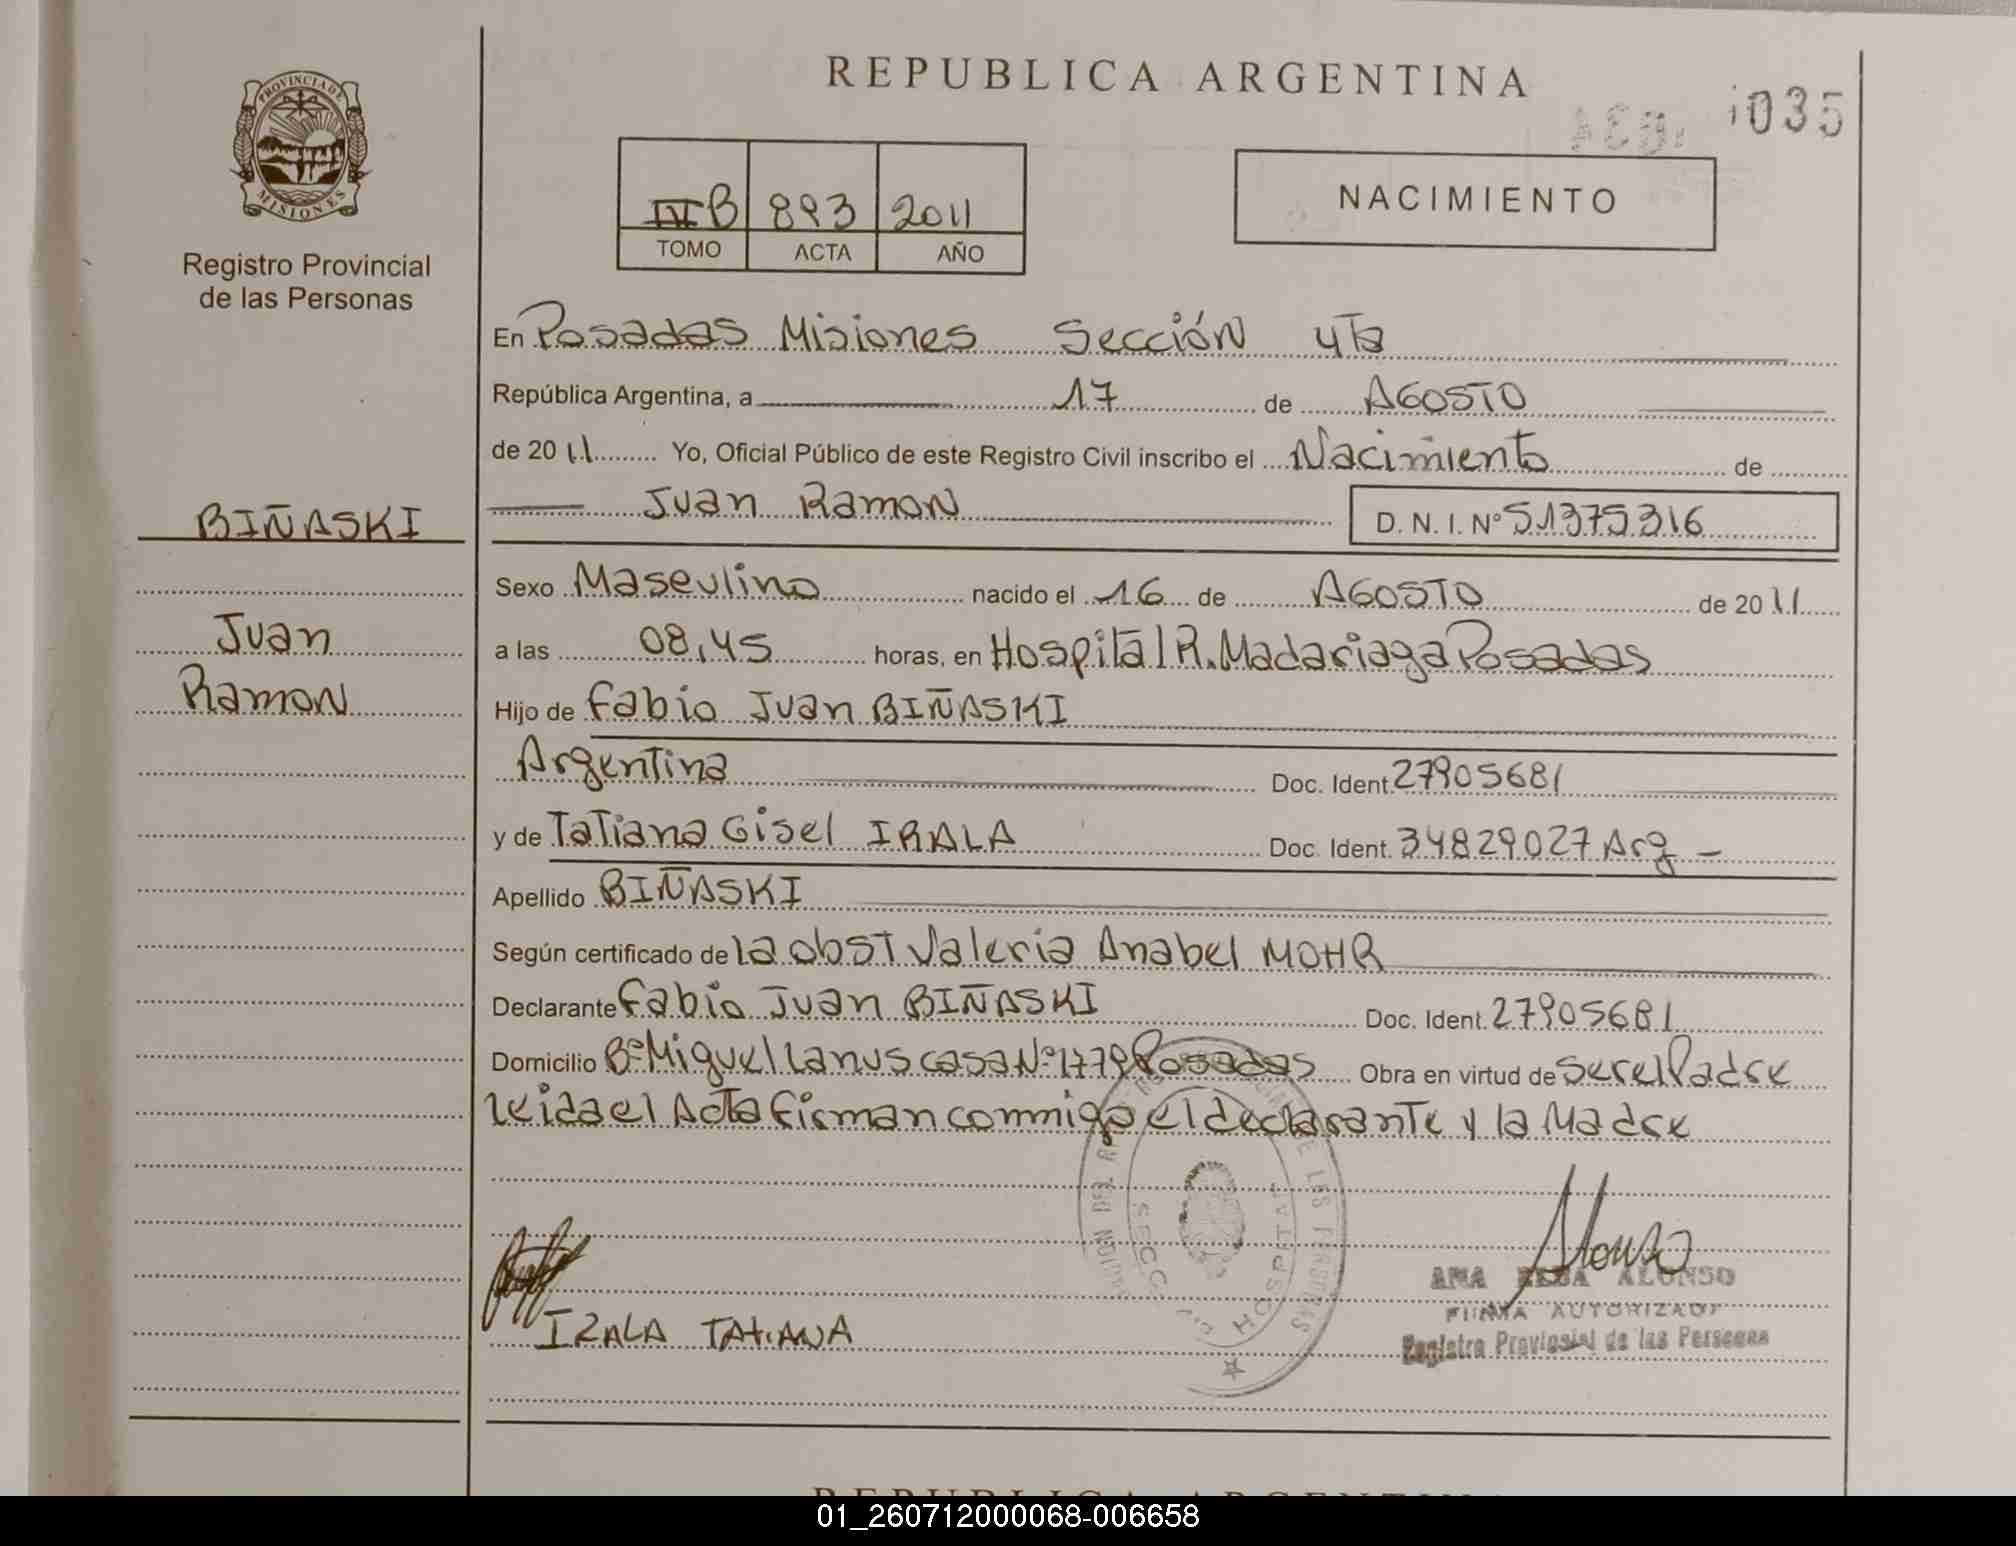 REPUBLICA ARGENTINA
035
PROVINCIA DE
MISIONES
Registro Provincial
de las Personas
IV B 893 2011
TOMO ACTA AÑO
NACIMIENTO
En Posadas Misiones Sección 4ta
República Argentina, a 17 de AGOSTO
de 2011 Yo, Oficial Público de este Registro Civil inscribo el Nacimiento de
Juan Ramon D. N. I. Nº 51375316
BIÑASKI
Juan
Ramon
Sexo Masculino nacido el 16 de AGOSTO de 2011
a las 08,45 horas, en Hospital R. Madariaga Posadas
Hijo de Fabio Juan BIÑASKI
Argentina Doc. Ident. 27905681
y de Tatiana Gisel IRALA Doc. Ident. 34829027 Arg -
Apellido BIÑASKI
Según certificado de la obst Valeria Anabel MOHR
Declarante Fabio Juan BIÑASKI Doc. Ident. 27905681
Domicilio Bº Miguel Lanus casa Nº 1779 Posadas Obra en virtud de ser el Padre
leida el Acta firman conmigo el declarante y la Madre
IRALA TATIANA
HOSPITAL
ANA ALONSO
FIRMA AUTORIZADA
Registro Provincial de las Personas
REPUBLICA ARGENTINA
01_260712000068-006658